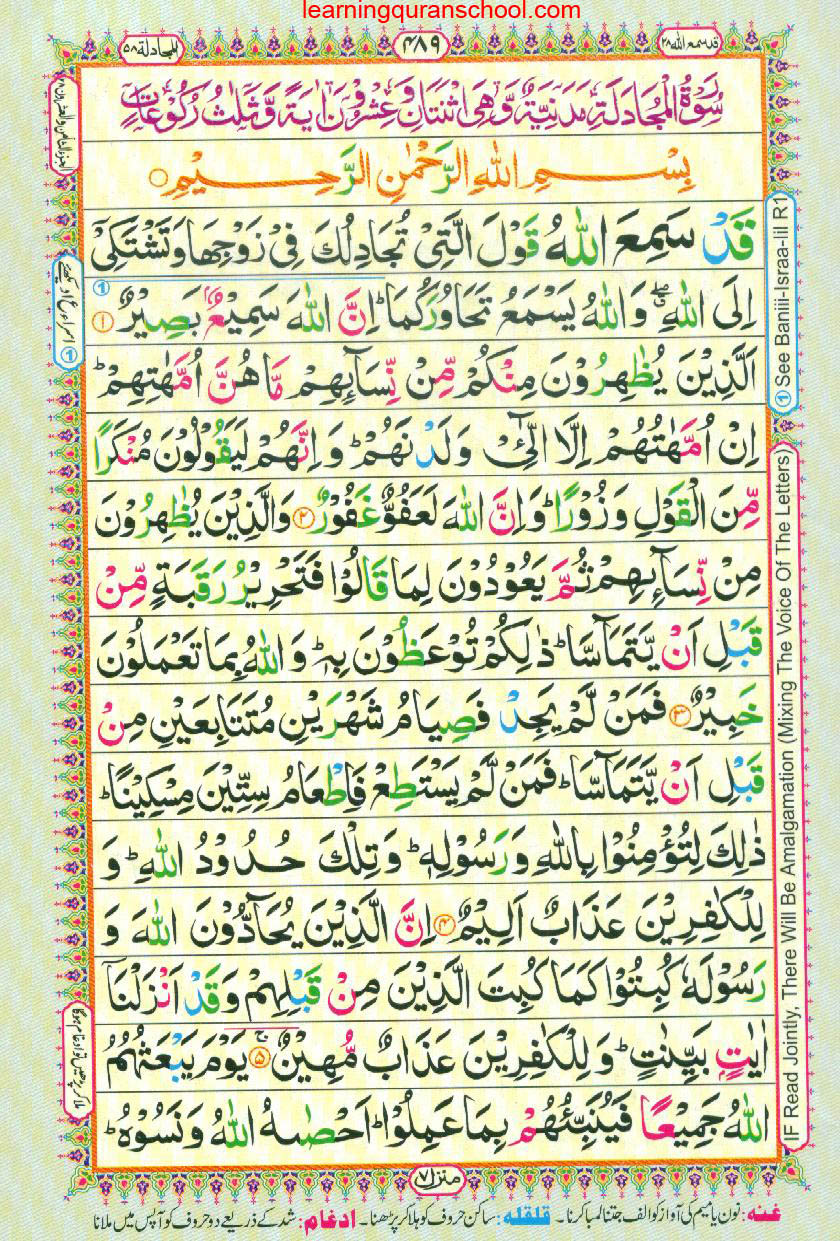 learningquranschool.com
قد سمع الله ۲۸
۴۸۹
المجادلة ۵۸
سُوْرَةُ الْمُجَادَلَةِ مَدَنِيَّةٌ وَّهِىَ اثْنَتَانِ وَعِشْرُوْنَ اٰيَةً وَّثَلٰثُ رُكُوْعَاتٍ
بِسْمِ اللّٰهِ الرَّحْمٰنِ الرَّحِيْمِ ○
قَدْ سَمِعَ اللّٰهُ قَوْلَ الَّتِىْ تُجَادِلُكَ فِىْ زَوْجِهَا وَتَشْتَكِىْٓ
اِلَى اللّٰهِ ۖ وَاللّٰهُ يَسْمَعُ تَحَاوُرَكُمَا ؕ اِنَّ اللّٰهَ سَمِيْعٌۢ بَصِيْرٌ ۱
اَلَّذِيْنَ يُظٰهِرُوْنَ مِنْكُمْ مِّنْ نِّسَآئِهِمْ مَّا هُنَّ اُمَّهٰتِهِمْ ؕ
اِنْ اُمَّهٰتُهُمْ اِلَّا الّٰٓئِىْ وَلَدْنَهُمْ ؕ وَاِنَّهُمْ لَيَقُوْلُوْنَ مُنْكَرًا
مِّنَ الْقَوْلِ وَزُوْرًا ؕ وَاِنَّ اللّٰهَ لَعَفُوٌّ غَفُوْرٌ ۲ وَالَّذِيْنَ يُظٰهِرُوْنَ
مِنْ نِّسَآئِهِمْ ثُمَّ يَعُوْدُوْنَ لِمَا قَالُوْا فَتَحْرِيْرُ رَقَبَةٍ مِّنْ
قَبْلِ اَنْ يَّتَمَآسَّا ؕ ذٰلِكُمْ تُوْعَظُوْنَ بِهٖ ؕ وَاللّٰهُ بِمَا تَعْمَلُوْنَ
خَبِيْرٌ ۳ فَمَنْ لَّمْ يَجِدْ فَصِيَامُ شَهْرَيْنِ مُتَتَابِعَيْنِ مِنْ
قَبْلِ اَنْ يَّتَمَآسَّا ؕ فَمَنْ لَّمْ يَسْتَطِعْ فَاِطْعَامُ سِتِّيْنَ مِسْكِيْنًا ؕ
ذٰلِكَ لِتُؤْمِنُوْا بِاللّٰهِ وَرَسُوْلِهٖ ؕ وَتِلْكَ حُدُوْدُ اللّٰهِ ؕ وَ
لِلْكٰفِرِيْنَ عَذَابٌ اَلِيْمٌ ۴ اِنَّ الَّذِيْنَ يُحَآدُّوْنَ اللّٰهَ وَ
رَسُوْلَهٗ كُبِتُوْا كَمَا كُبِتَ الَّذِيْنَ مِنْ قَبْلِهِمْ وَقَدْ اَنْزَلْنَآ
اٰيٰتٍۭ بَيِّنٰتٍ ؕ وَلِلْكٰفِرِيْنَ عَذَابٌ مُّهِيْنٌ ۚ ۵ يَوْمَ يَبْعَثُهُمُ
اللّٰهُ جَمِيْعًا فَيُنَبِّئُهُمْ بِمَا عَمِلُوْا ؕ اَحْصٰىهُ اللّٰهُ وَنَسُوْهُ ؕ
منزل ۷
غنه: نون یا میم کی آواز کو الف جتنا لمبا کرنا۔ قلقله: ساکن حروف کو ہلا کر پڑھنا۔ ادغام: شد کے ذریعے دو حروف کو آپس میں ملانا
① See Baniii-Israa-Iil R1
IF Read Jointly, There Will Be Amalgamation (Mixing The Voice Of The Letters)